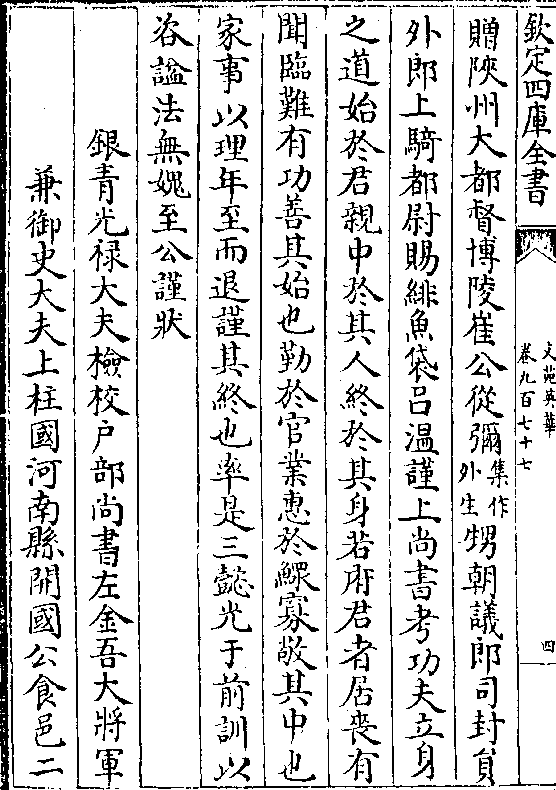 欽定四庫全書
文苑英華
卷九百七十七
四
贈陜州大都督博陵崔公從彌集作外生甥朝議郎司封員
外郎上騎都尉賜緋魚袋呂溫謹上尚書考功夫立身
之道始於君親中於其人終於其身若府君者居喪有
聞臨難有功善其始也勤於官業惠於鰥寡敬其中也
家事以理年至而退謹其終也率是三懿光于前訓以
咨謚法無媿至公謹狀
銀青光禄大夫檢校戸部尚書左金吾大將軍
兼御史大夫上柱國河南縣開國公食邑二